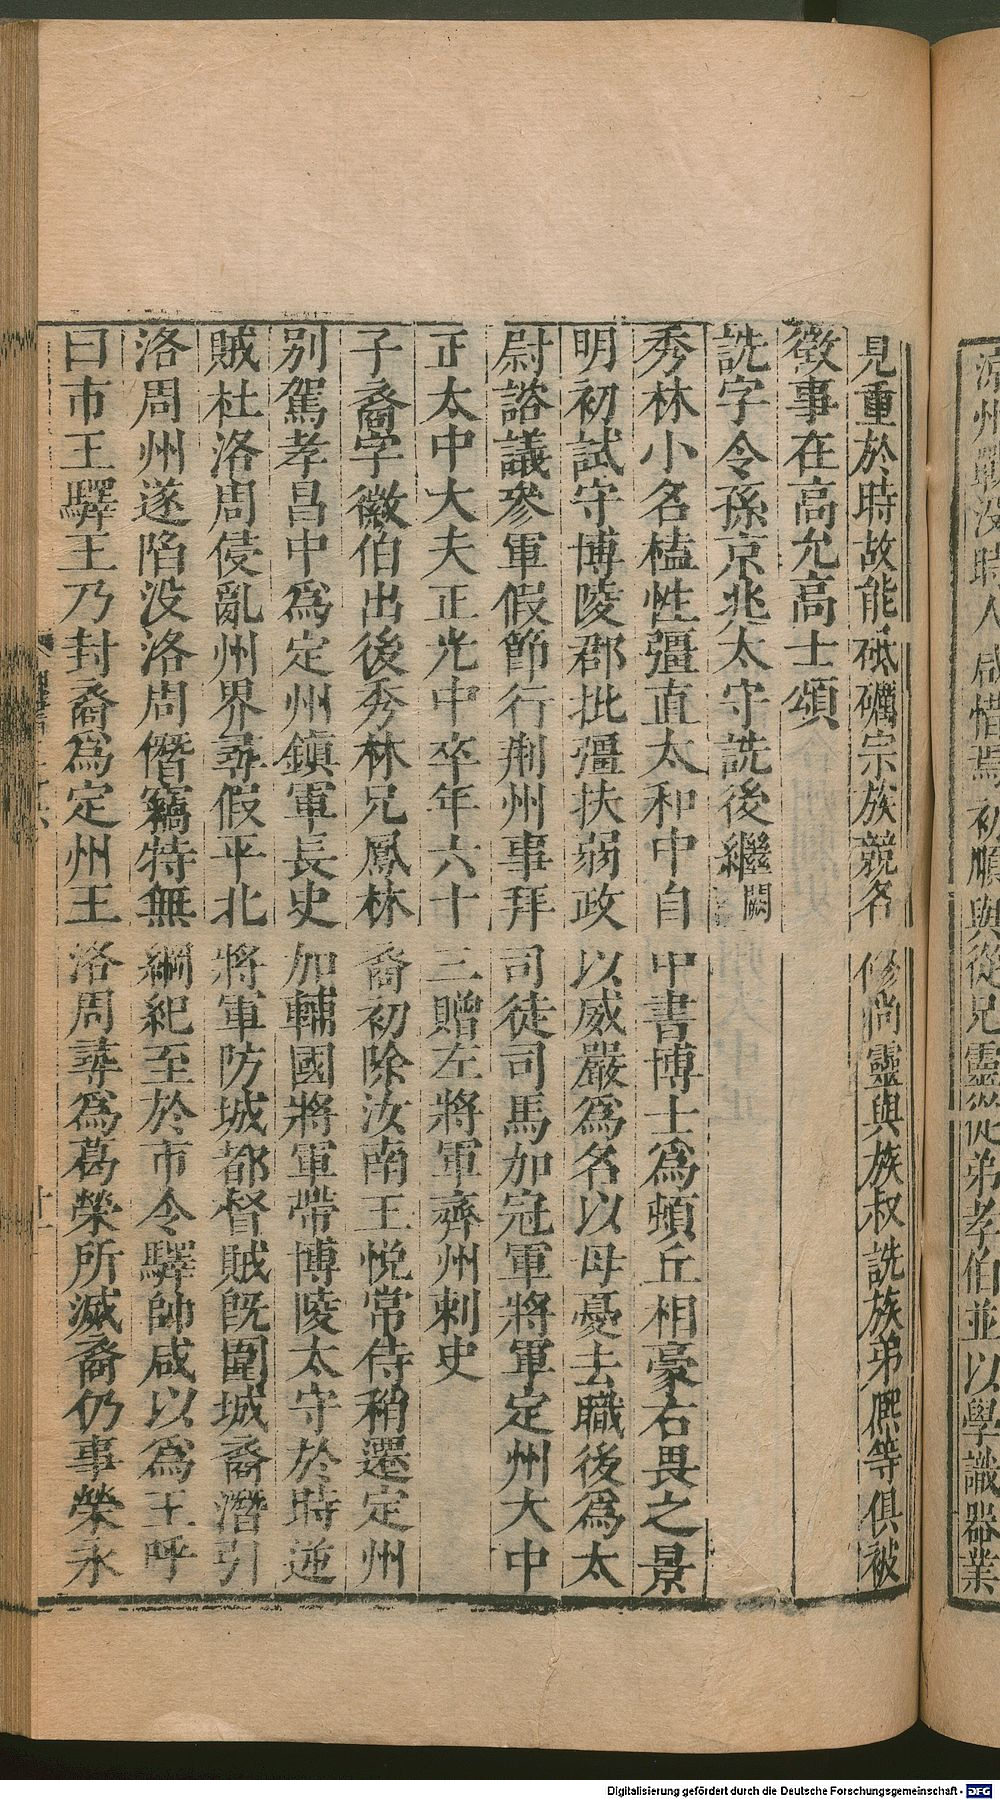 涼州戰没時人咸惜焉初順與從兄靈從弟孝伯並以學識器業
見重於時故能砥礪宗族競名修尚靈與族叔詵族弟熙等俱被
徵事在高允高士頌
詵字令孫京兆太守詵後繼闕
秀林小名榼性彊直太和中自中書博士爲頓丘相豪右畏之景
明初試守博陵郡批彊扶弱政以威嚴爲名以母憂去職後爲太
尉諮議參軍假節行荆州事拜司徒司馬加冠軍將軍定州大中
正太中大夫正光中卒年六十三贈左將軍齊州刺史
子裔字徽伯出後秀林兄鳳林裔初除汝南王悅常侍稍還定州
別駕孝昌中爲定州鎮軍長史加輔國將軍帶博陵太守於時逆
賊杜洛周侵亂州界尋假平北將軍防城都督賊旣圍城裔潛引
洛周州遂陷没洛周僭竊特無綱紀至於市令驛帥咸以爲王呼
曰市王驛王乃封裔爲定州王洛周尋爲葛榮所滅裔仍事榮永
Digitalisierung gefördert durch die Deutsche Forschungsgemeinschaft - DFG